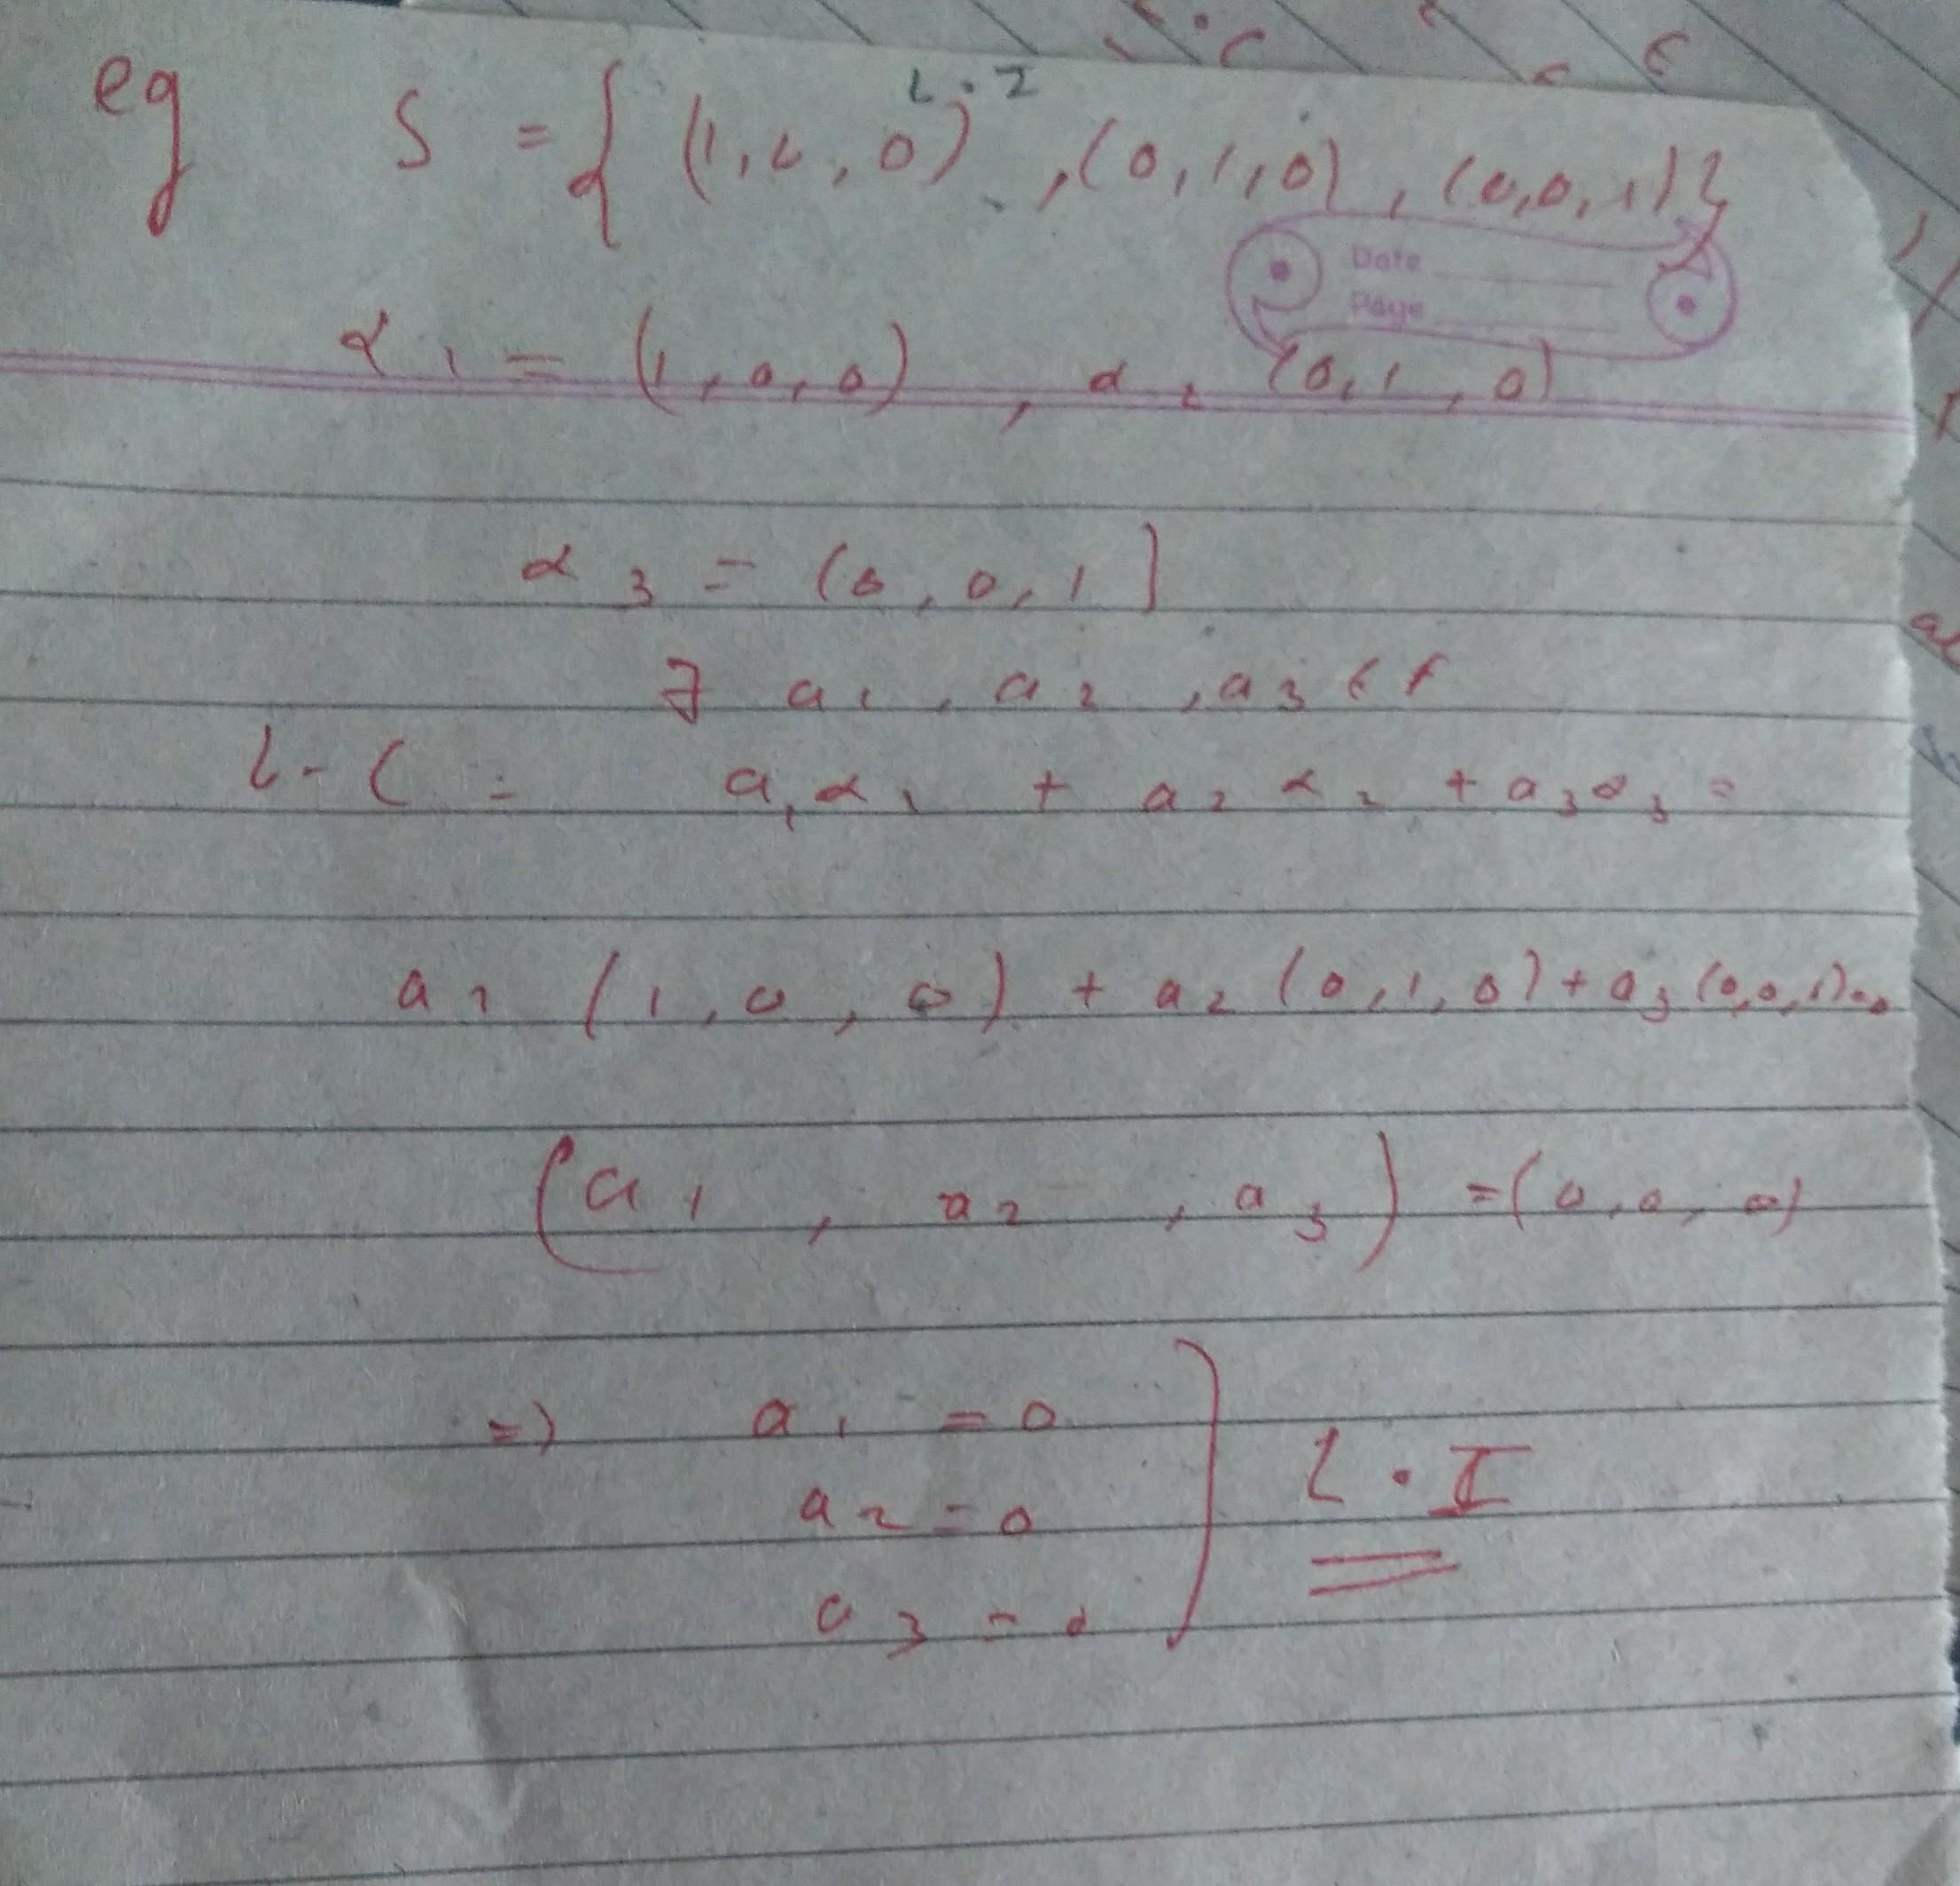 L.I
eg S = { (1, 0, 0), (0, 1, 0), (0, 0, 1) }
Date
Page
α1 = (1, 0, 0) , α2 (0, 1, 0)
α3 = (0, 0, 1]
∃ a1, a2, a3 ∈ F
L-C = a1α1 + a2α2 + a3α3 =
a1 (1, 0, 0) + a2 (0, 1, 0) + a3 (0, 0, 1) = 0
(a1, a2, a3) = (0, 0, 0)
=> a1 = 0
a2 = 0
L.I
a3 = 0